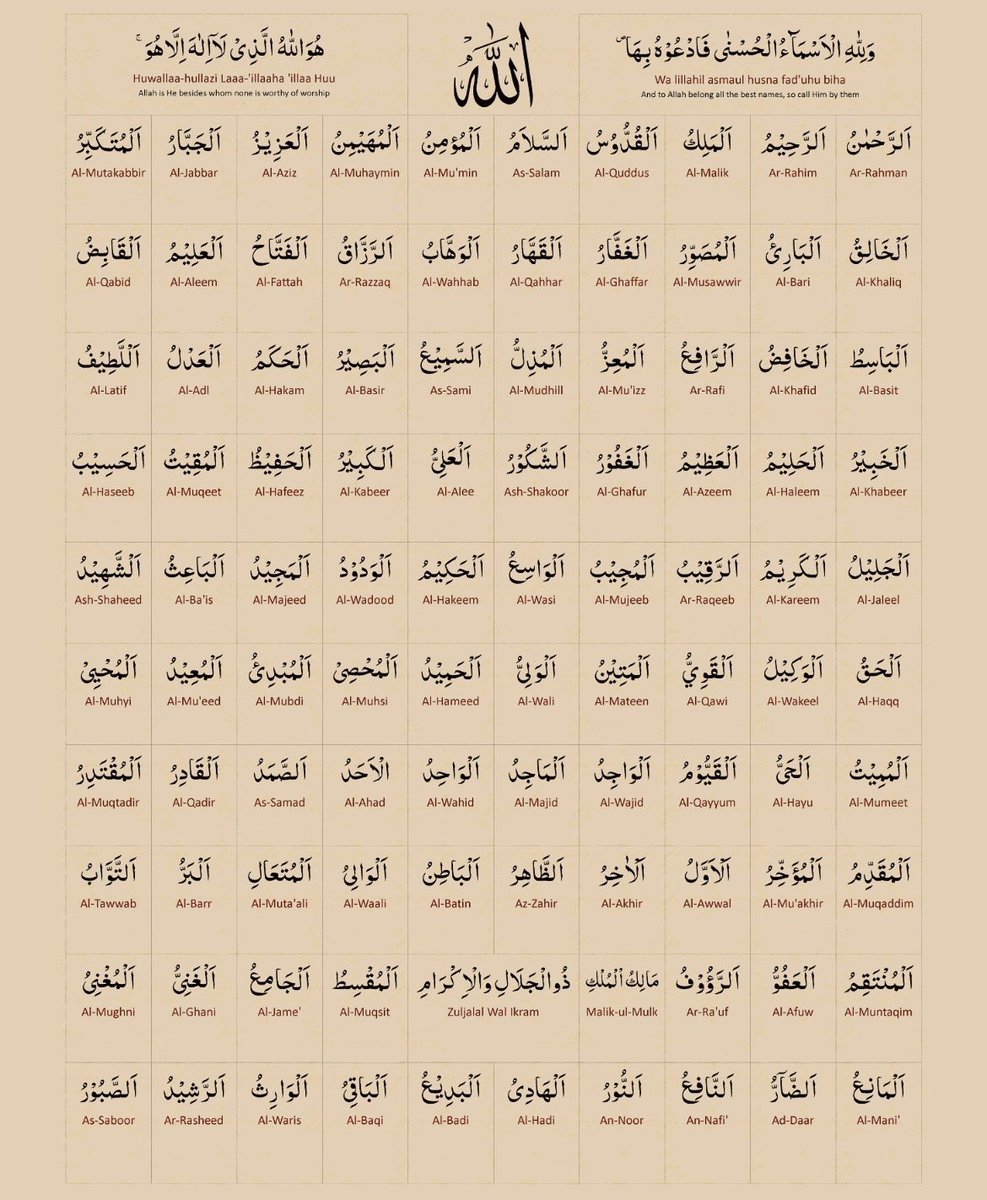 وَلِلّٰهِ الْاَسْمَآءُ الْحُسْنٰى فَادْعُوْهُ بِهَا ۖ
Wa lillahil asmaul husna fad'uhu biha
And to Allah belong all the best names, so call Him by them
اللّٰه
هُوَ اللّٰهُ الَّذِىْ لَآ اِلٰهَ اِلَّا هُوَ ۚ
Huwallaa-hullazi Laaa-'illaaha 'illaa Huu
Allah is He besides whom none is worthy of worship
اَلرَّحْمٰنُ اَلرَّحِيْمُ اَلْمَلِكُ اَلْقُدُّوْسُ اَلسَّلَامُ اَلْمُؤْمِنُ اَلْمُهَيْمِنُ اَلْعَزِيْزُ اَلْجَبَّارُ اَلْمُتَكَبِّرُ
Al-Mutakabbir Al-Jabbar Al-Aziz Al-Muhaymin Al-Mu'min As-Salam Al-Quddus Al-Malik Ar-Rahim Ar-Rahman
اَلْخَالِقُ اَلْبَارِئُ اَلْمُصَوِّرُ اَلْغَفَّارُ اَلْقَهَّارُ اَلْوَهَّابُ اَلرَّزَّاقُ اَلْفَتَّاحُ اَلْعَلِيْمُ اَلْقَابِضُ
Al-Qabid Al-Aleem Al-Fattah Ar-Razzaq Al-Wahhab Al-Qahhar Al-Ghaffar Al-Musawwir Al-Bari Al-Khaliq
اَلْبَاسِطُ اَلْخَافِضُ اَلرَّافِعُ اَلْمُعِزُّ اَلْمُذِلُّ اَلسَّمِيْعُ اَلْبَصِيْرُ اَلْحَكَمُ اَلْعَدْلُ اَللَّطِيْفُ
Al-Latif Al-Adl Al-Hakam Al-Basir As-Sami Al-Mudhill Al-Mu'izz Ar-Rafi Al-Khafid Al-Basit
اَلْخَبِيْرُ اَلْحَلِيْمُ اَلْعَظِيْمُ اَلْغَفُوْرُ اَلشَّكُوْرُ اَلْعَلِىُّ اَلْكَبِيْرُ اَلْحَفِيْظُ اَلْمُقِيْتُ اَلْحَسِيْبُ
Al-Haseeb Al-Muqeet Al-Hafeez Al-Kabeer Al-Alee Ash-Shakoor Al-Ghafur Al-Azeem Al-Haleem Al-Khabeer
اَلْجَلِيْلُ اَلْكَرِيْمُ اَلرَّقِيْبُ اَلْمُجِيْبُ اَلْوَاسِعُ اَلْحَكِيْمُ اَلْوَدُوْدُ اَلْمَجِيْدُ اَلْبَاعِثُ اَلشَّهِيْدُ
Ash-Shaheed Al-Ba'is Al-Majeed Al-Wadood Al-Hakeem Al-Wasi Al-Mujeeb Ar-Raqeeb Al-Kareem Al-Jaleel
اَلْحَقُّ اَلْوَكِيْلُ اَلْقَوِيُّ اَلْمَتِيْنُ اَلْوَلِىُّ اَلْحَمِيْدُ اَلْمُحْصِىْ اَلْمُبْدِئُ اَلْمُعِيْدُ اَلْمُحْيِىْ
Al-Muhyi Al-Mu'eed Al-Mubdi Al-Muhsi Al-Hameed Al-Wali Al-Mateen Al-Qawi Al-Wakeel Al-Haqq
اَلْمُمِيْتُ اَلْحَىُّ اَلْقَيُّوْمُ اَلْوَاجِدُ اَلْمَاجِدُ اَلْوَاحِدُ الْاَحَدُ اَلصَّمَدُ اَلْقَادِرُ اَلْمُقْتَدِرُ
Al-Muqtadir Al-Qadir As-Samad Al-Ahad Al-Wahid Al-Majid Al-Wajid Al-Qayyum Al-Hayu Al-Mumeet
اَلْمُقَدِّمُ اَلْمُؤَخِّرُ اَلْاَوَّلُ اَلْاٰخِرُ اَلظَّاهِرُ اَلْبَاطِنُ اَلْوَالِىُ اَلْمُتَعَالِ اَلْبَرُّ اَلتَّوَّابُ
Al-Tawwab Al-Barr Al-Muta'ali Al-Waali Al-Batin Az-Zahir Al-Akhir Al-Awwal Al-Mu'akhir Al-Muqaddim
اَلْمُنْتَقِمُ اَلْعَفُوُّ اَلرَّؤُوْفُ مَالِكُ الْمُلْكِ ذُو الْجَلَالِ وَالْاِكْرَامِ اَلْمُقْسِطُ اَلْجَامِعُ اَلْغَنِىُّ اَلْمُغْنِىُ
Al-Mughni Al-Ghani Al-Jame' Al-Muqsit Zuljalal Wal Ikram Malik-ul-Mulk Ar-Ra'uf Al-Afuw Al-Muntaqim
اَلْمَانِعُ اَلضَّآرُّ اَلنَّافِعُ اَلنُّوْرُ اَلْهَادِىُ اَلْبَدِيْعُ اَلْبَاقِىُ اَلْوَارِثُ اَلرَّشِيْدُ اَلصَّبُوْرُ
As-Saboor Ar-Rasheed Al-Waris Al-Baqi Al-Badi Al-Hadi An-Noor An-Nafi' Ad-Daar Al-Mani'